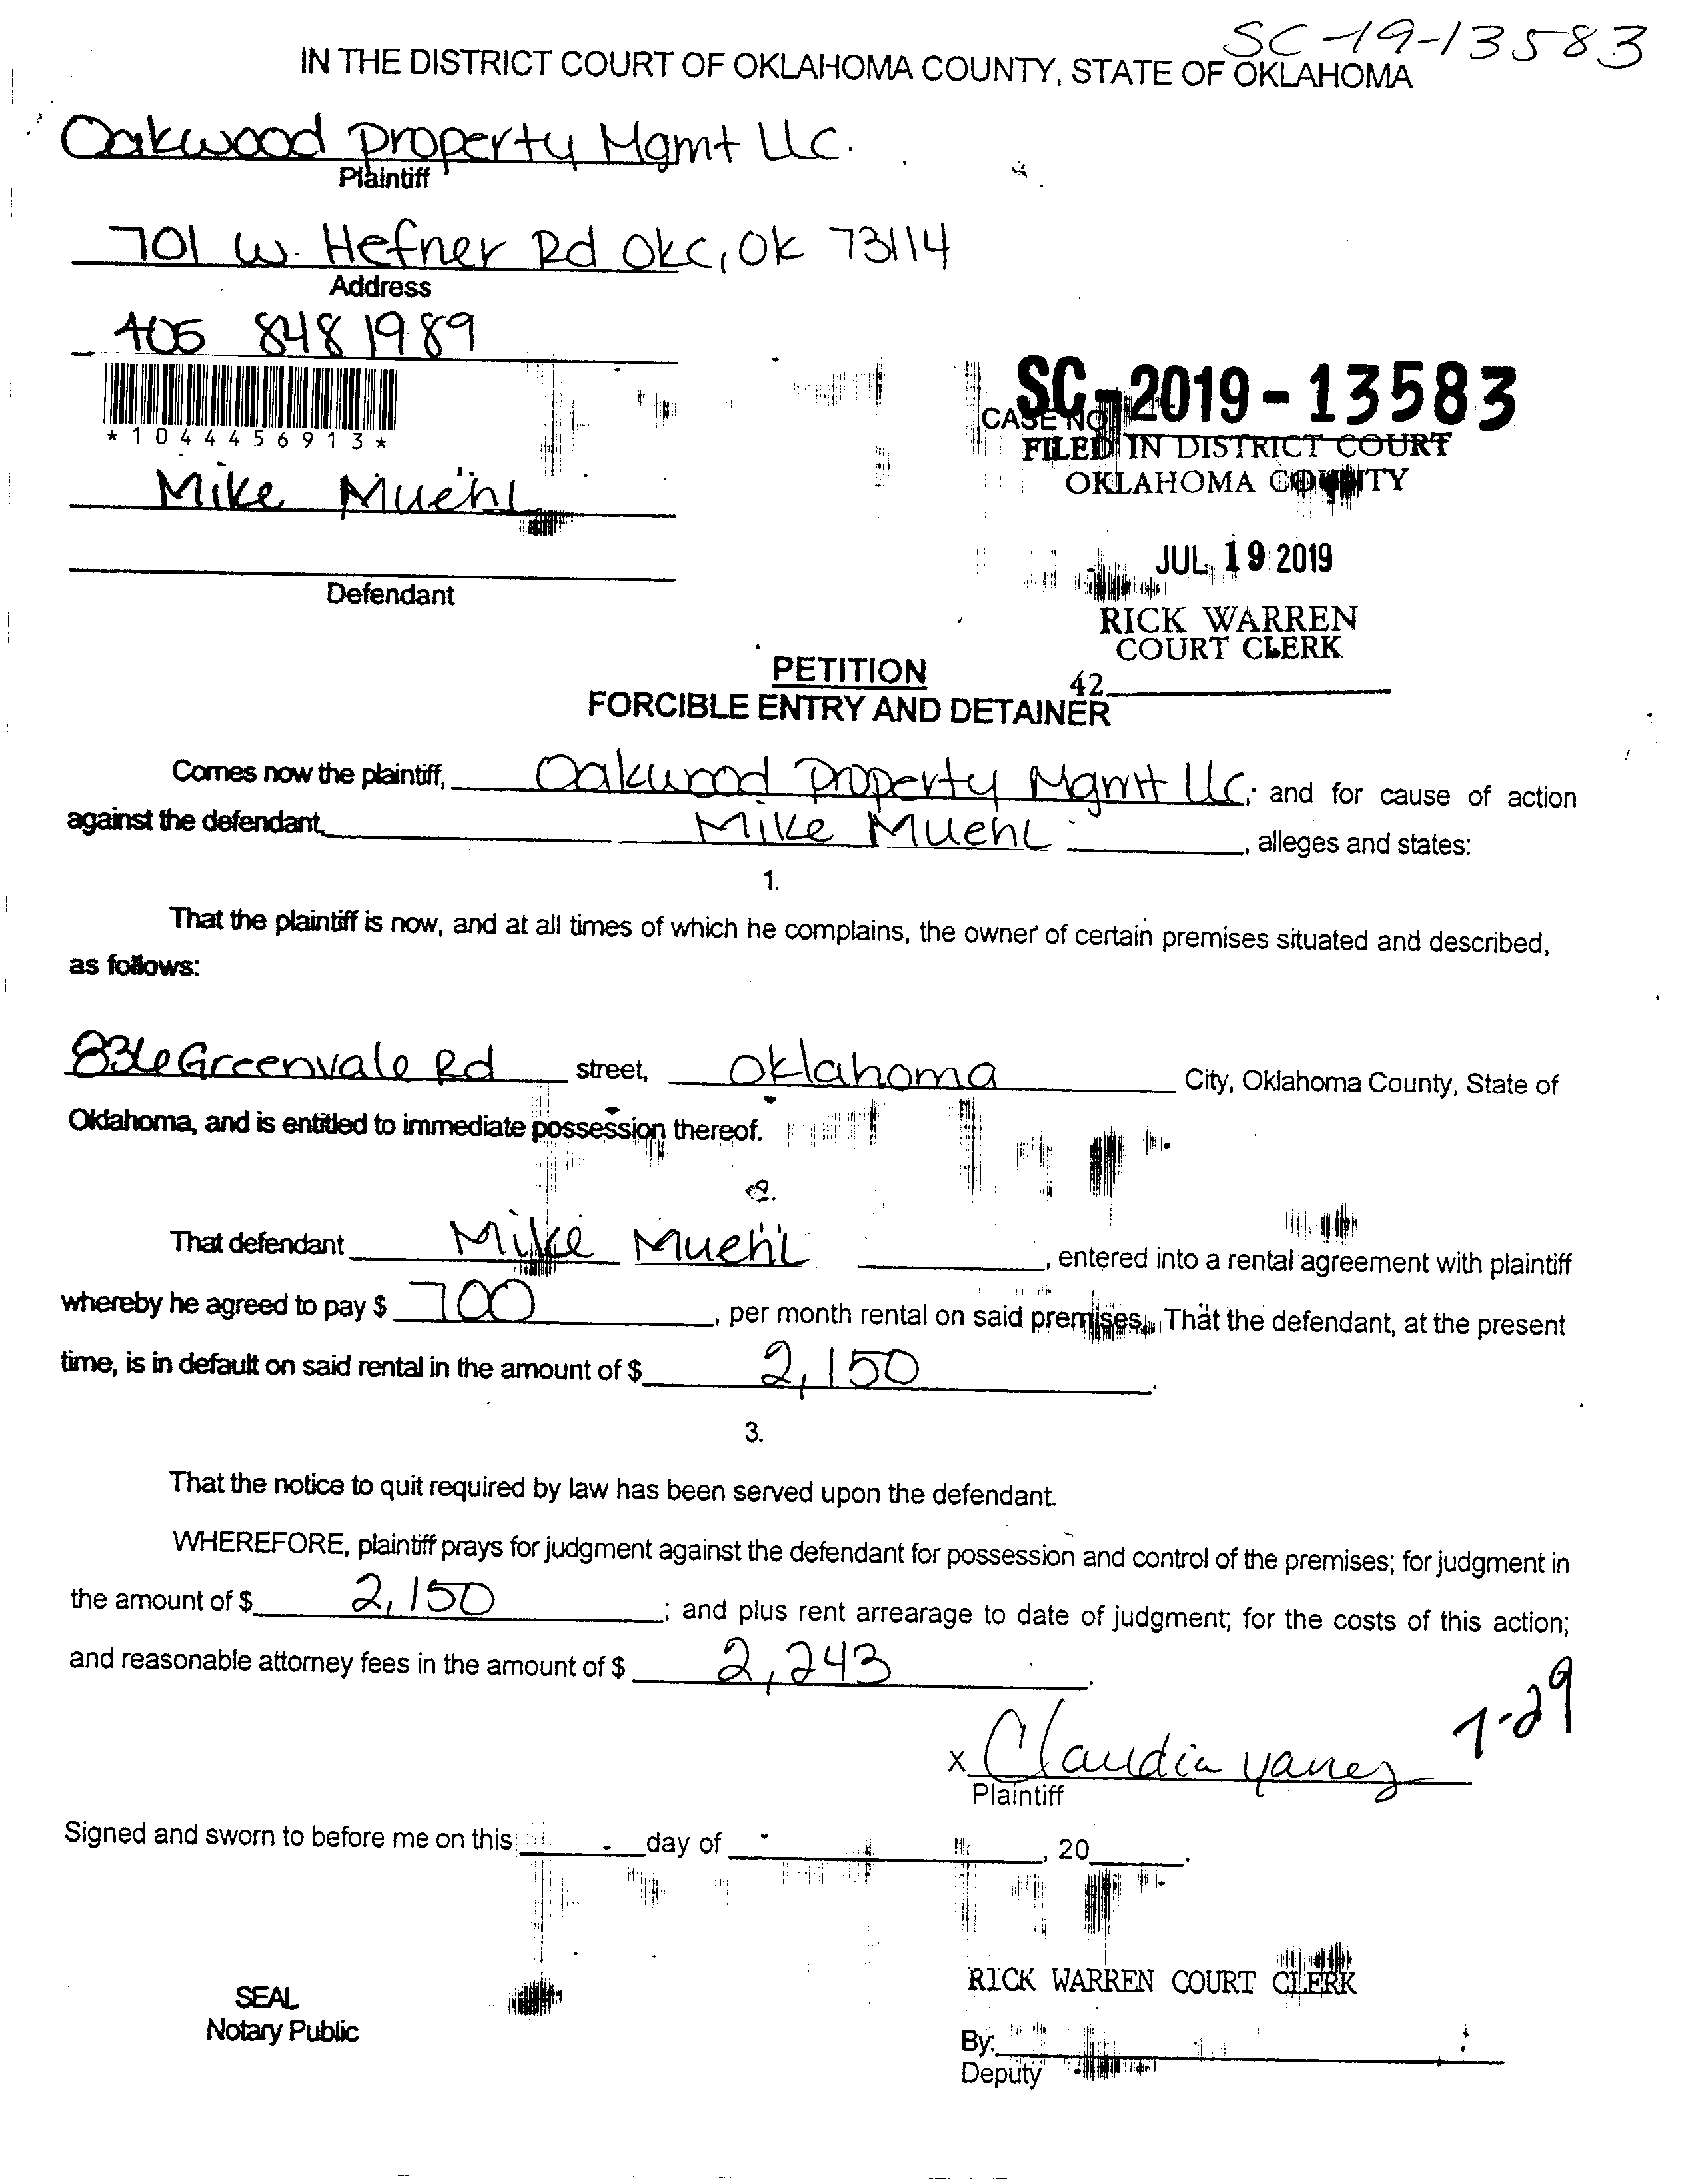 SC-19-13583
IN THE DISTRICT COURT OF OKLAHOMA COUNTY, STATE OF OKLAHOMA
Oakwood Property Mgmt LLC.
Plaintiff
701 W. Hefner Rd OKC, OK 73114
Address
405 848 1989
*1044456913*
SC-2019-13583
CASE NO
FILED IN DISTRICT COURT
OKLAHOMA COUNTY
Mike Muehl
JUL 19 2019
Defendant
RICK WARREN
COURT CLERK
42
PETITION
FORCIBLE ENTRY AND DETAINER
Comes now the plaintiff, Oakwood Property Mgmt LLC, and for cause of action
against the defendant, Mike Muehl, alleges and states:
1.
That the plaintiff is now, and at all times of which he complains, the owner of certain premises situated and described,
as follows:
836 Greenvale Rd street, Oklahoma City, Oklahoma County, State of
Oklahoma, and is entitled to immediate possession thereof.
2.
That defendant Mike Muehl, entered into a rental agreement with plaintiff
whereby he agreed to pay $ 700, per month rental on said premises. That the defendant, at the present
time, is in default on said rental in the amount of $ 2,150.
3.
That the notice to quit required by law has been served upon the defendant.
WHEREFORE, plaintiff prays for judgment against the defendant for possession and control of the premises; for judgment in
the amount of $ 2,150; and plus rent arrearage to date of judgment; for the costs of this action;
and reasonable attorney fees in the amount of $ 2,243.
7-29
x Claudia Yanez
Plaintiff
Signed and sworn to before me on this day of , 20 .
RICK WARREN COURT CLERK
SEAL
Notary Public
By:
Deputy